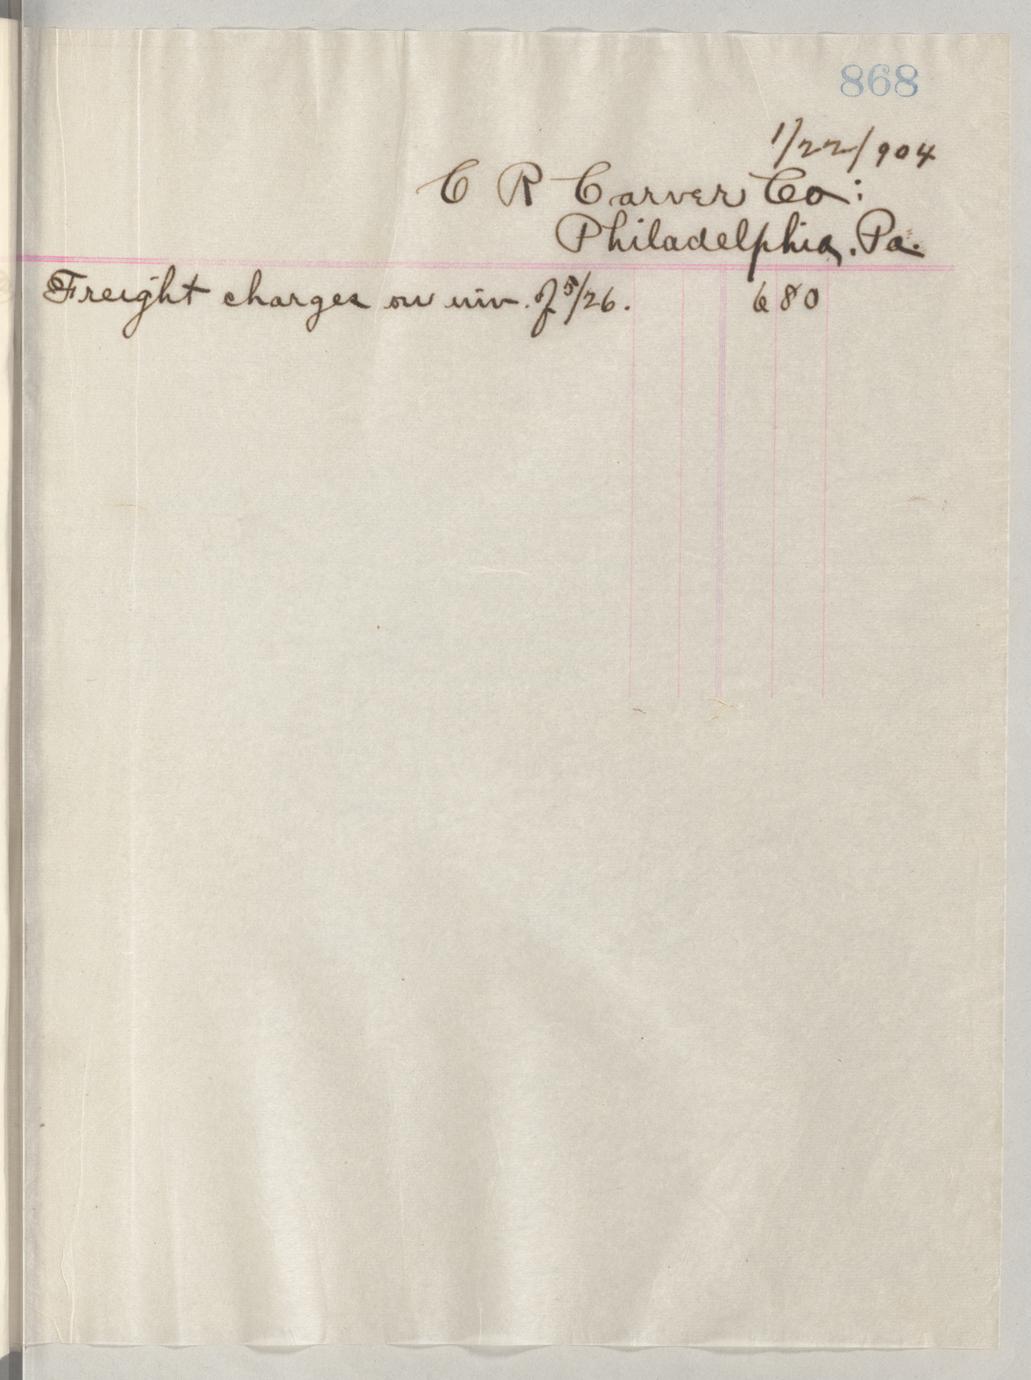 868
1/22/904
C R Carver Co:
Philadelphia, Pa.
Freight charges on inv. of 5/26. 6 80